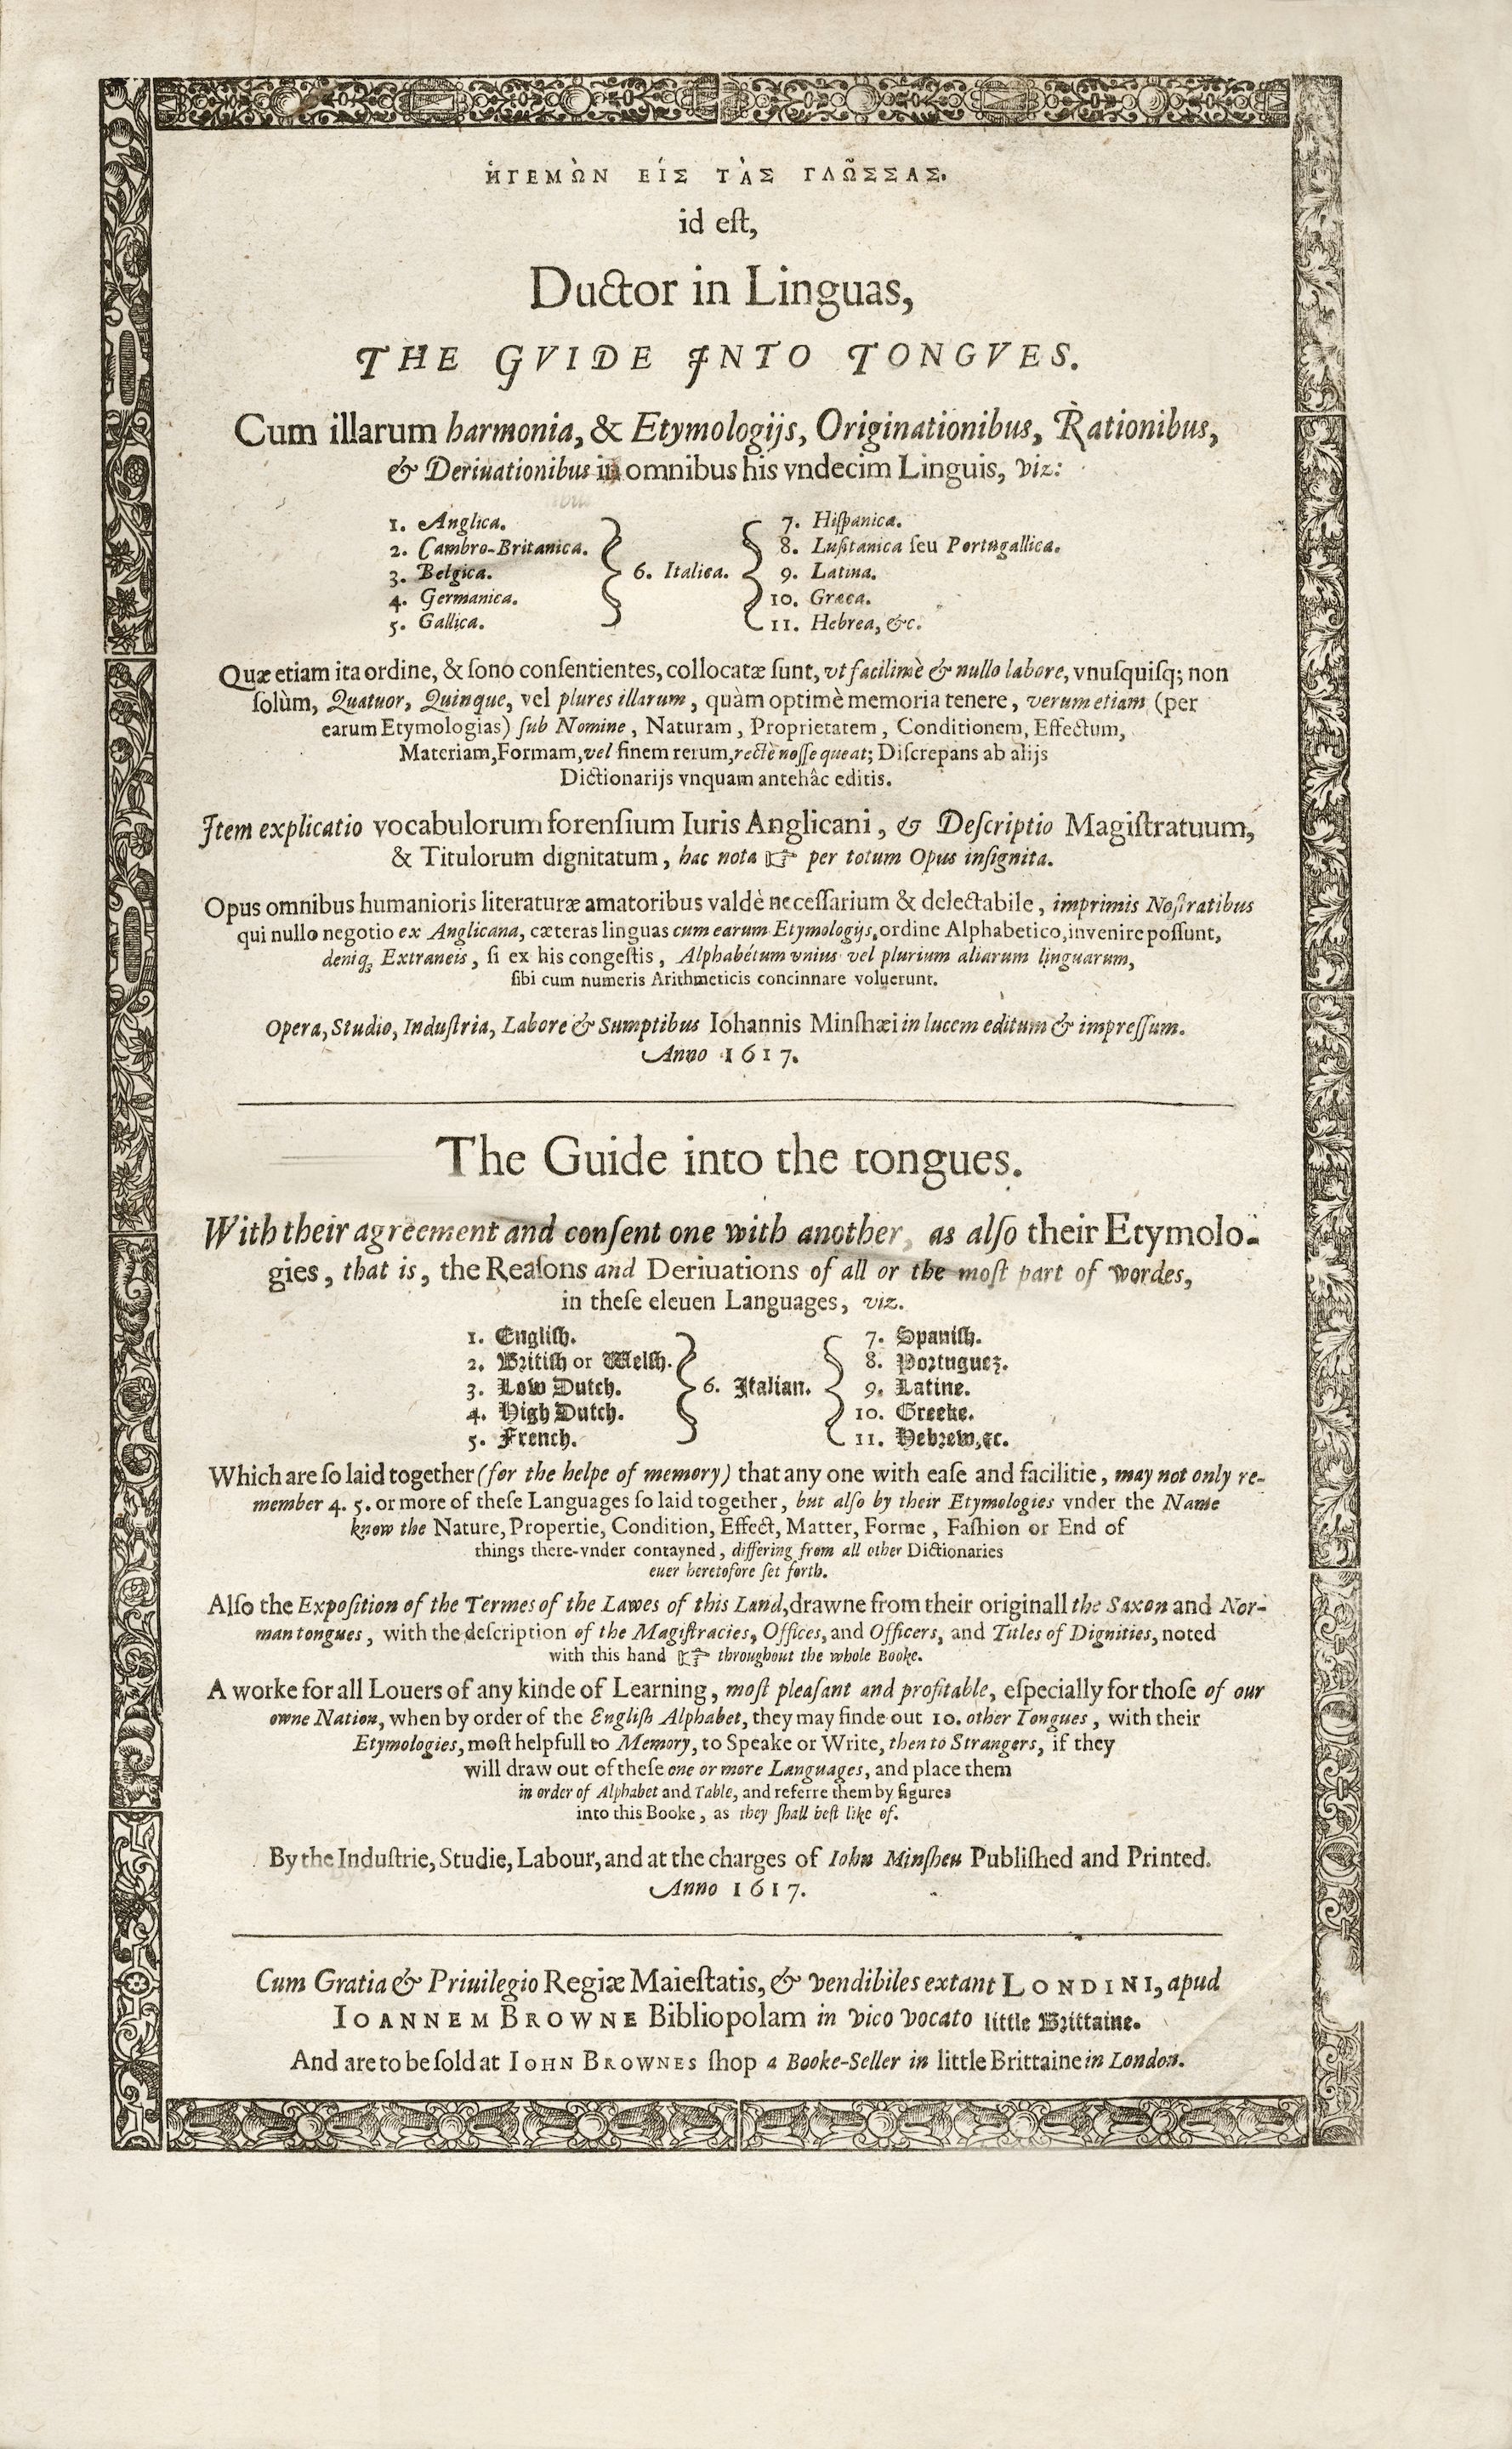 ἩΓΕΜῺΝ ΕἸΣ ΤᾺΣ ΓΛΩ͂ΣΣΑΣ.
id eſt,
Ductor in Linguas,
THE GVIDE INTO TONGVES.
Cum illarum harmonia, & Etymologijs, Originationibus, Rationibus,
& Deriuationibus in omnibus his vndecim Linguis, viz:
1. Anglica.
2. Cambro-Britanica.
3. Belgica.
4. Germanica.
5. Gallica.
6. Italica.
7. Hiſpanica.
8. Luſitanica ſeu Portugallica.
9. Latina.
10. Græca.
11. Hebrea, &c.
Quæ etiam ita ordine, & ſono conſentientes, collocatæ ſunt, vt facilimè & nullo labore, vnuſquiſq; non
ſolùm, Quatuor, Quinque, vel plures illarum, quàm optimè memoria tenere, verum etiam (per
earum Etymologias) ſub Nomine, Naturam, Proprietatem, Conditionem, Effectum,
Materiam, Formam, vel finem rerum, rectè noſſe queat; Diſcrepans ab alijs
Dictionarijs vnquam antehâc editis.
Item explicatio vocabulorum forenſium Iuris Anglicani, & Deſcriptio Magiſtratuum,
& Titulorum dignitatum, hac nota ☞ per totum Opus inſignita.
Opus omnibus humanioris literaturæ amatoribus valdè neceſſarium & delectabile, imprimis Noſtratibus
qui nullo negotio ex Anglicana, cæteras linguas cum earum Etymologijs, ordine Alphabetico, invenire poſſunt,
deniq; Extraneis, ſi ex his congeſtis, Alphabétum vnius vel plurium aliarum linguarum,
ſibi cum numeris Arithmeticis concinnare voluerunt.
Opera, Studio, Induſtria, Labore & Sumptibus Iohannis Minſhæi in lucem editum & impreſſum.
Anno 1617.
The Guide into the tongues.
With their agreement and conſent one with another, as alſo their Etymolo-
gies, that is, the Reaſons and Deriuations of all or the moſt part of wordes,
in theſe eleuen Languages, viz.
1. Engliſh.
2. Britiſh or Welſh.
3. Low Dutch.
4. High Dutch.
5. French.
6. Italian.
7. Spaniſh.
8. Portuguez.
9. Latine.
10. Greeke.
11. Hebrew, &c.
Which are ſo laid together (for the helpe of memory) that any one with eaſe and facilitie, may not only re-
member 4. 5. or more of theſe Languages ſo laid together, but alſo by their Etymologies vnder the Name
know the Nature, Propertie, Condition, Effect, Matter, Forme, Faſhion or End of
things there-vnder contayned, differing from all other Dictionaries
euer heretofore ſet forth.
Alſo the Expoſition of the Termes of the Lawes of this Land, drawne from their originall the Saxon and Nor-
man tongues, with the deſcription of the Magiſtracies, Offices, and Officers, and Titles of Dignities, noted
with this hand ☞ throughout the whole Booke.
A worke for all Louers of any kinde of Learning, moſt pleaſant and profitable, eſpecially for thoſe of our
owne Nation, when by order of the Engliſh Alphabet, they may finde out 10. other Tongues, with their
Etymologies, moſt helpfull to Memory, to Speake or Write, then to Strangers, if they
will draw out of theſe one or more Languages, and place them
in order of Alphabet and Table, and referre them by figures
into this Booke, as they ſhall beſt like of.
By the Induſtrie, Studie, Labour, and at the charges of Iohn Minſheu Publiſhed and Printed.
Anno 1617.
Cum Gratia & Priuilegio Regiæ Maieſtatis, & vendibiles extant LONDINI, apud
IOANNEM BROWNE Bibliopolam in vico vocato little Brittaine.
And are to be ſold at IOHN BROWNES ſhop a Booke-Seller in little Brittaine in London.